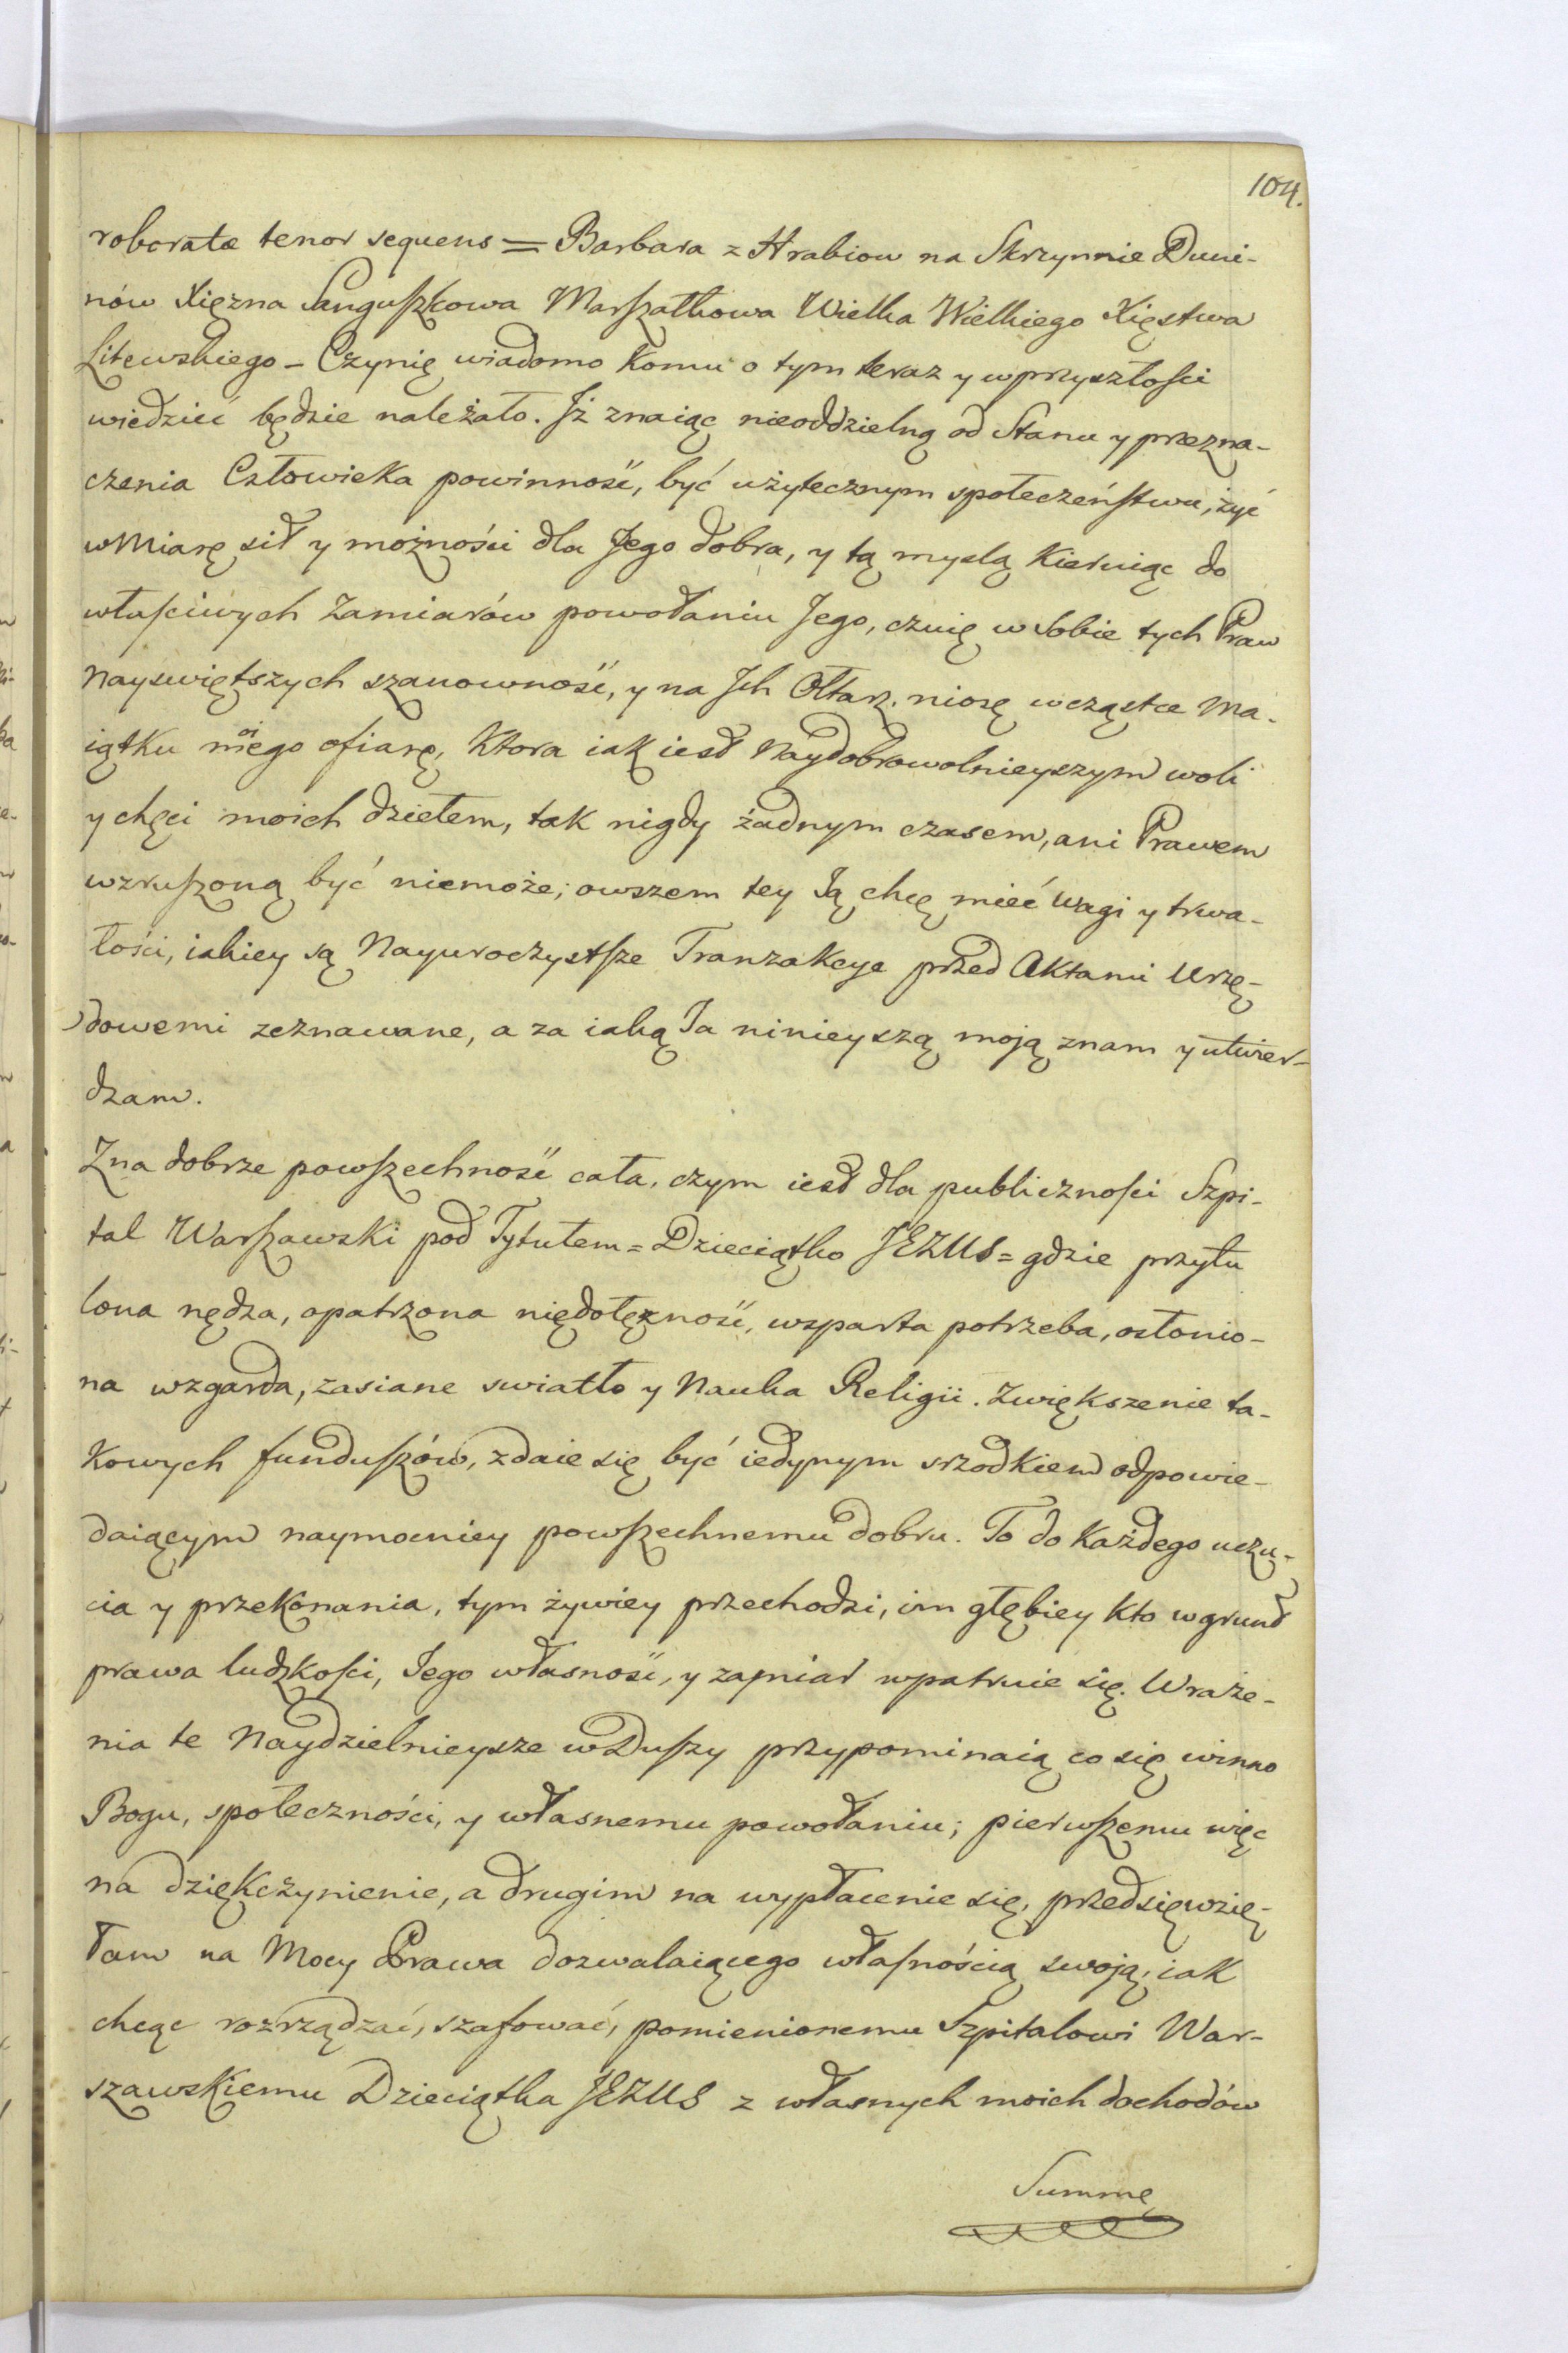 104.
roboratæ tenor sequens = Barbara z Hrabiow na Skrzynnie Duni-
nów Xiężna Sanguszkowa Marszałkowa Wielka Wielkiego Xięstwa
Litewskiego – Czynię wiadomo komu o tym teraz y wprzyszłości
wiedzieć będzie należało. Jż znaiąc nieoddzielną od Stanu y przezna-
czenia Człowieka powinność, być użytecznym społeczeństwu, żyć
w Miarę sił y możności dla Jego dobra, y tą myslą Kieruiąc do
właściwych Zamiarów powołaniu Jego, czuię w Sobie tych Praw
Nayswiętszych szanowność, y na Jch Ołtarz, niosę wcząstce Ma-
iątku moiego ofiarę, Ktora iak iest Naydobrowolnieyszym woli
y chęci moich dziełem, tak nigdy żadnym czasem, ani Prawem
wzruszoną być niemoże; owszem tey Ją chcę mieć wagi y trwa-
łości, iakiey są Nayuroczystsze Tranzakcye przed Aktami Urzę-
dowemi zeznawane, a za iaką Ja ninieyszą moją znam y utwier-
dzam.
Zna dobrze powszechność cała, czym iest dla publiczności Szpi-
tal Warszawski pod Tytułem = Dzieciątko JEZUS = gdzie przytu
lona nędza, opatrzona niędołężność, wsparta potrzeba, osłonio-
na wzgarda, zasiane swiatło y Nauka Religii. Zwiększenie ta-
kowych funduszów, zdaie się być iedynym srzodkiem odpowie-
daiącym naymocniey powszechnemu dobru. To do Każdego uczu-
cia y przekonania, tym żywiey przechodzi, im głębiey kto w grunt
prawa ludzkości, Jego własność, y zamiar wpatruie się. Wraże-
nia te Naydzielnieysze w Duszy przypominaią co się winno
Bogu, społeczności, y własnemu powołaniu; pierwszemu więc
na dziękczynienie, a drugim na wypłacenie się, przedsięwzię-
łam na Mocy Prawa dozwalaiącego własnością swoją, iak
chcąc rozrządzać, szafować, pomienionemu Szpitalowi War-
szawskiemu Dzieciątka JEZUS z własnych moich dochodów
Summę